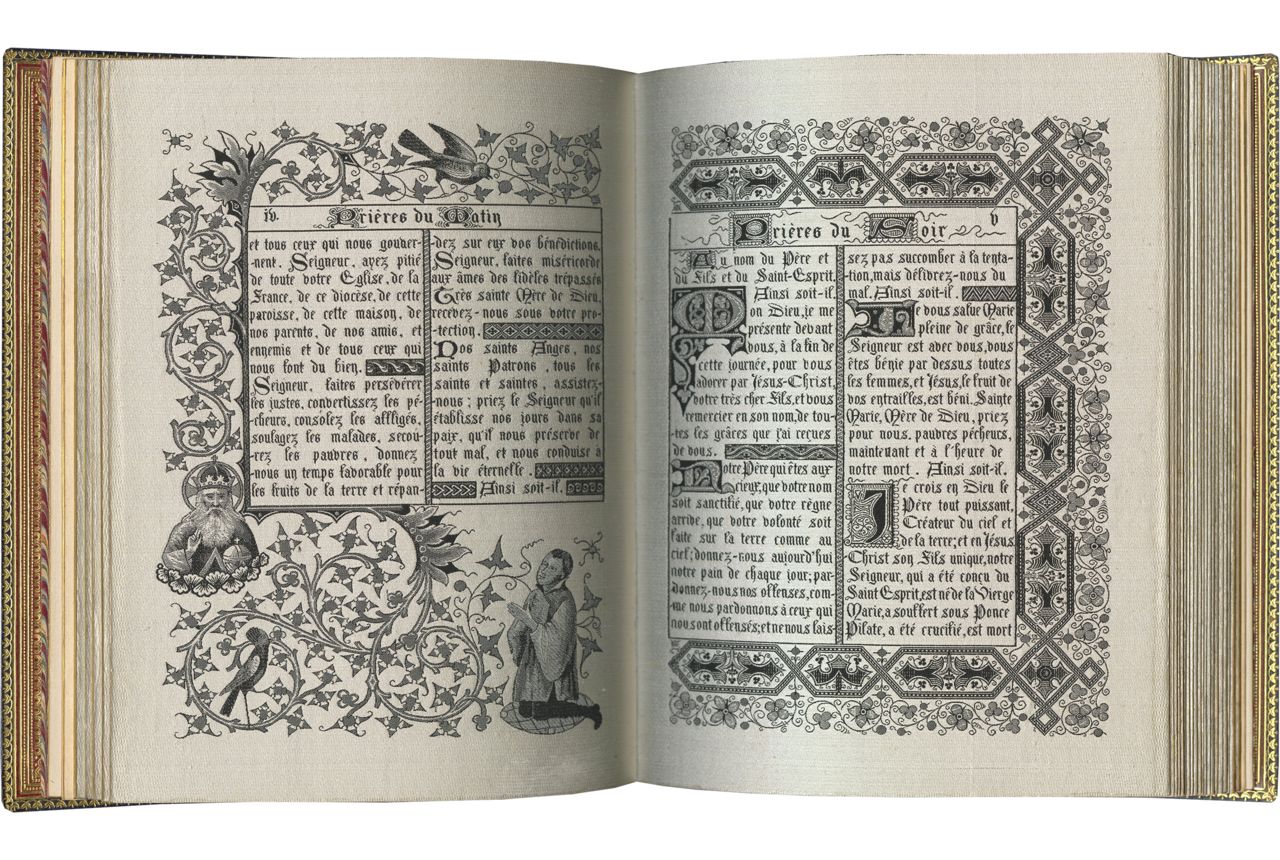 iv.
Prières du Matin
et tous ceux qui nous gouver-
-nent. Seigneur, ayez pitié
de toute votre Eglise, de la
France, de ce diocèse, de cette
paroisse, de cette maison, de
nos parents, de nos amis, et
ennemis et de tous ceux qui
nous font du bien.
Seigneur, faites persévérer
les justes, convertissez les pé-
cheurs, consolez les affligés,
soulagez les malades, secou-
-rez les pauvres, donnez
-nous un temps favorable pour
les fruits de la terre et répan-
-dez sur eux vos bénédictions.
Seigneur, faites miséricorde
aux âmes des fidèles trépassés
Très sainte Mère de Dieu,
recevez-nous sous votre pro-
-tection.
Nos saints Anges, nos
saints Patrons, tous les
saints et saintes, assistez-
-nous; priez le Seigneur qu'il
établisse nos jours dans sa
paix, qu'il nous préserve de
tout mal, et nous conduise à
la vie éternelle.
Ainsi soit-il.
Prières du Soir
v
Au nom du Père et
du Fils et du Saint-Esprit.
Ainsi soit-il.
Mon Dieu, je me
présente devant
vous, à la fin de
cette journée, pour vous
adorer par Jésus-Christ,
votre très cher Fils, et vous
remercier en son nom, de tou-
-tes les grâces que j'ai reçues
de vous.
Notre Père qui êtes aux
cieux, que votre nom
soit sanctifié, que votre règne
arrive, que votre volonté soit
faite sur la terre comme au
ciel; donnez-nous aujourd'hui
notre pain de chaque jour; par-
donnez-nous nos offenses, com-
-me nous pardonnons à ceux qui
nous ont offensés; et ne nous lais-
sez pas succomber à la tenta-
-tion, mais délivrez-nous du
mal. Ainsi soit-il.
Je vous salue Marie
pleine de grâce, le
Seigneur est avec vous, vous
êtes bénie par dessus toutes
les femmes, et Jésus, le fruit de
vos entrailles, est béni. Sainte
Marie, Mère de Dieu, priez
pour nous, pauvres pécheurs,
maintenant et à l'heure de
notre mort. Ainsi soit-il.
Je crois en Dieu le
Père tout puissant,
Créateur du ciel et
de la terre; et en Jésus
Christ son Fils unique, notre
Seigneur, qui a été conçu du
Saint Esprit, est né de la Vierge
Marie, a souffert sous Ponce
Pilate, a été crucifié, est mort